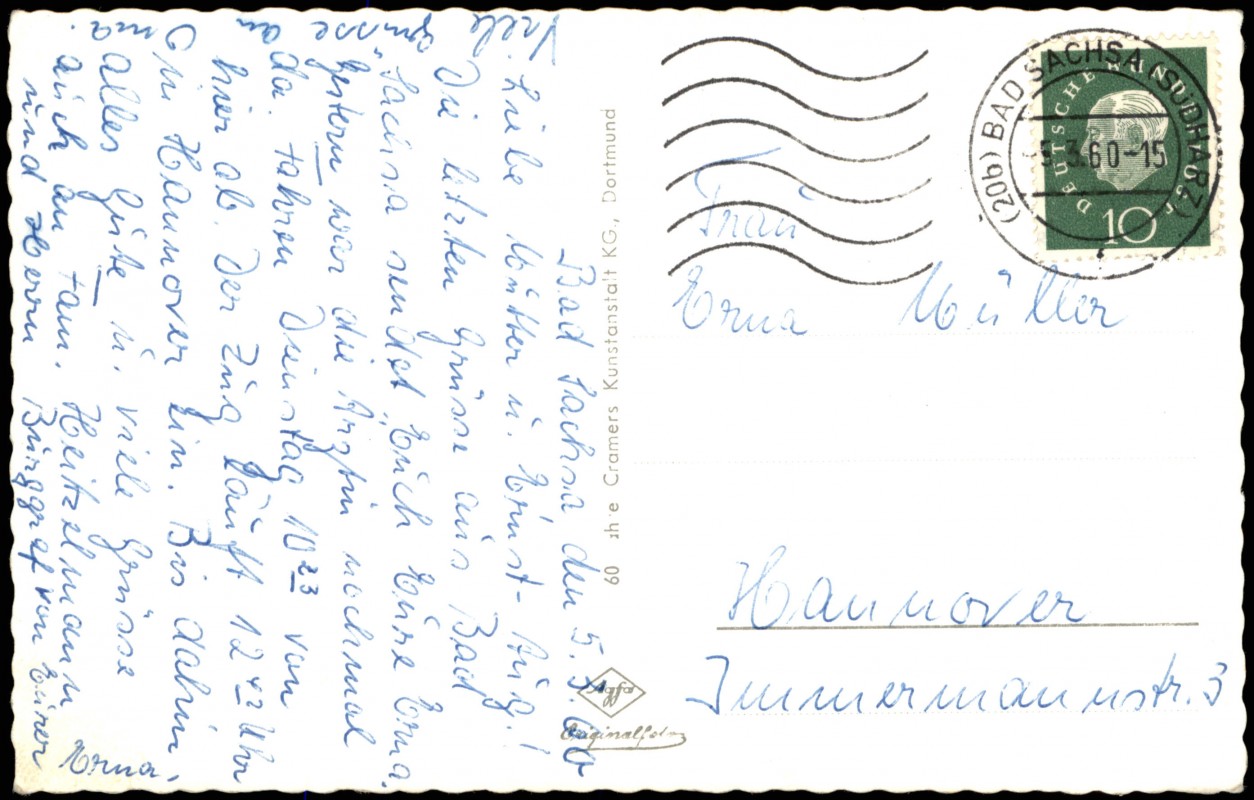 Bad Sachsa den 5.3.60
Liebe Mutter u. Ernst-Aug.!
Die letzten Grüsse aus Bad
Sachsa sendet Euch Eure Erna.
Gestern war die Ärztin nochmal
da. Fahren Dienstag 10 23 von
hier ab. Der Zug läuft 12 42 Uhr
in Hannover ein. Bis dahin
alles Gute u. viele Grüsse
auch an Fam. Heitzelmann
und Herrn Burggraf von Eurer
Erna.
Viele
Grüsse
an
Oma.
60 Jahre Cramers Kunstanstalt KG., Dortmund
Agfa
Originalfoto
(20b) BAD SACHSA (SÜDHARZ)
-5.3.60-15
DEUTSCHE BUNDESPOST
10
Frau
Erna Müller
Hannover
Immermannstr. 3